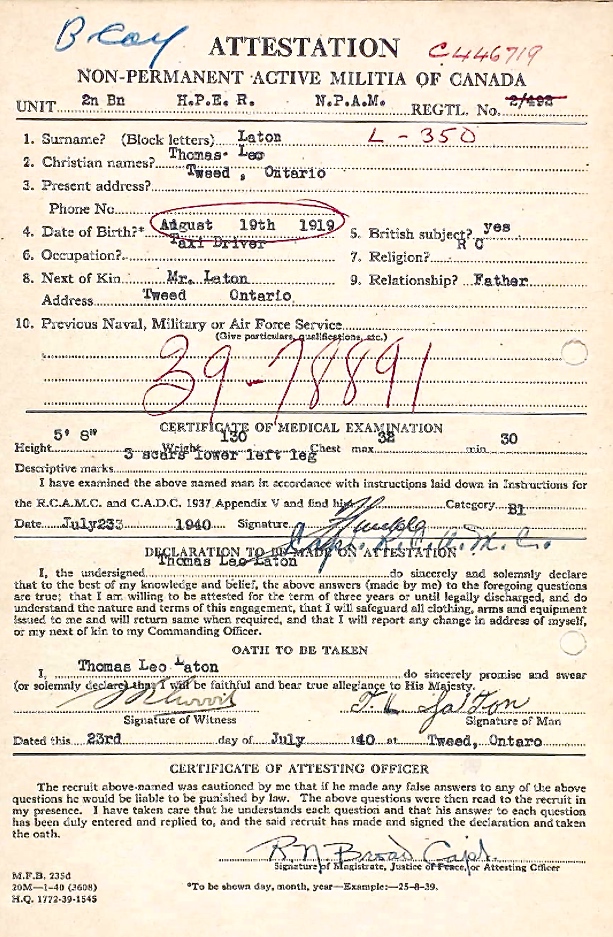 B Coy
ATTESTATION C446719
NON-PERMANENT ACTIVE MILITIA OF CANADA
UNIT 2n Bn H.P.E R. N.P.A.M. REGTL. No. 2/493
1. Surname? (Block letters) Laton L - 350
2. Christian names? Thomas Leo
3. Present address? Tweed , Ontario
Phone No.
4. Date of Birth?* August 19th 1919 5. British subject? yes
6. Occupation? Taxi Driver 7. Religion? R C
8. Next of Kin Mr. Laton 9. Relationship? Father
Address Tweed Ontario
10. Previous Naval, Military or Air Force Service
(Give particulars, qualifications, etc.)
39-78891
CERTIFICATE OF MEDICAL EXAMINATION
Height 5' 8" Weight 130 Chest max 32 min 30
Descriptive marks 3 scars lower left leg
I have examined the above named man in accordance with instructions laid down in Instructions for
the R.C.A.M.C. and C.A.D.C. 1937 Appendix V and find him Category B1
Date July233 1940 Signature
Capt. R.C.A.M.C.
DECLARATION TO BE MADE ON ATTESTATION
I, the undersigned Thomas Leo Laton do sincerely and solemnly declare
that to the best of my knowledge and belief, the above answers (made by me) to the foregoing questions
are true; that I am willing to be attested for the term of three years or until legally discharged, and do
understand the nature and terms of this engagement, that I will safeguard all clothing, arms and equipment
issued to me and will return same when required, and that I will report any change in address of myself,
or my next of kin to my Commanding Officer.
OATH TO BE TAKEN
I, Thomas Leo Laton do sincerely promise and swear
(or solemnly declare) that I will be faithful and bear true allegiance to His Majesty.
T. L Laton
Signature of Witness Signature of Man
Dated this 23rd day of July 140 at Tweed, Ontaro
CERTIFICATE OF ATTESTING OFFICER
The recruit above-named was cautioned by me that if he made any false answers to any of the above
questions he would be liable to be punished by law. The above questions were then read to the recruit in
my presence. I have taken care that he understands each question and that his answer to each question
has been duly entered and replied to, and the said recruit has made and signed the declaration and taken
the oath.
R N Broad Capt.
Signature of Magistrate, Justice of Peace, or Attesting Officer
M.F.B. 235d
20M—1-40 (3608) *To be shown day, month, year—Example:—25-8-39.
H.Q. 1772-39-1545